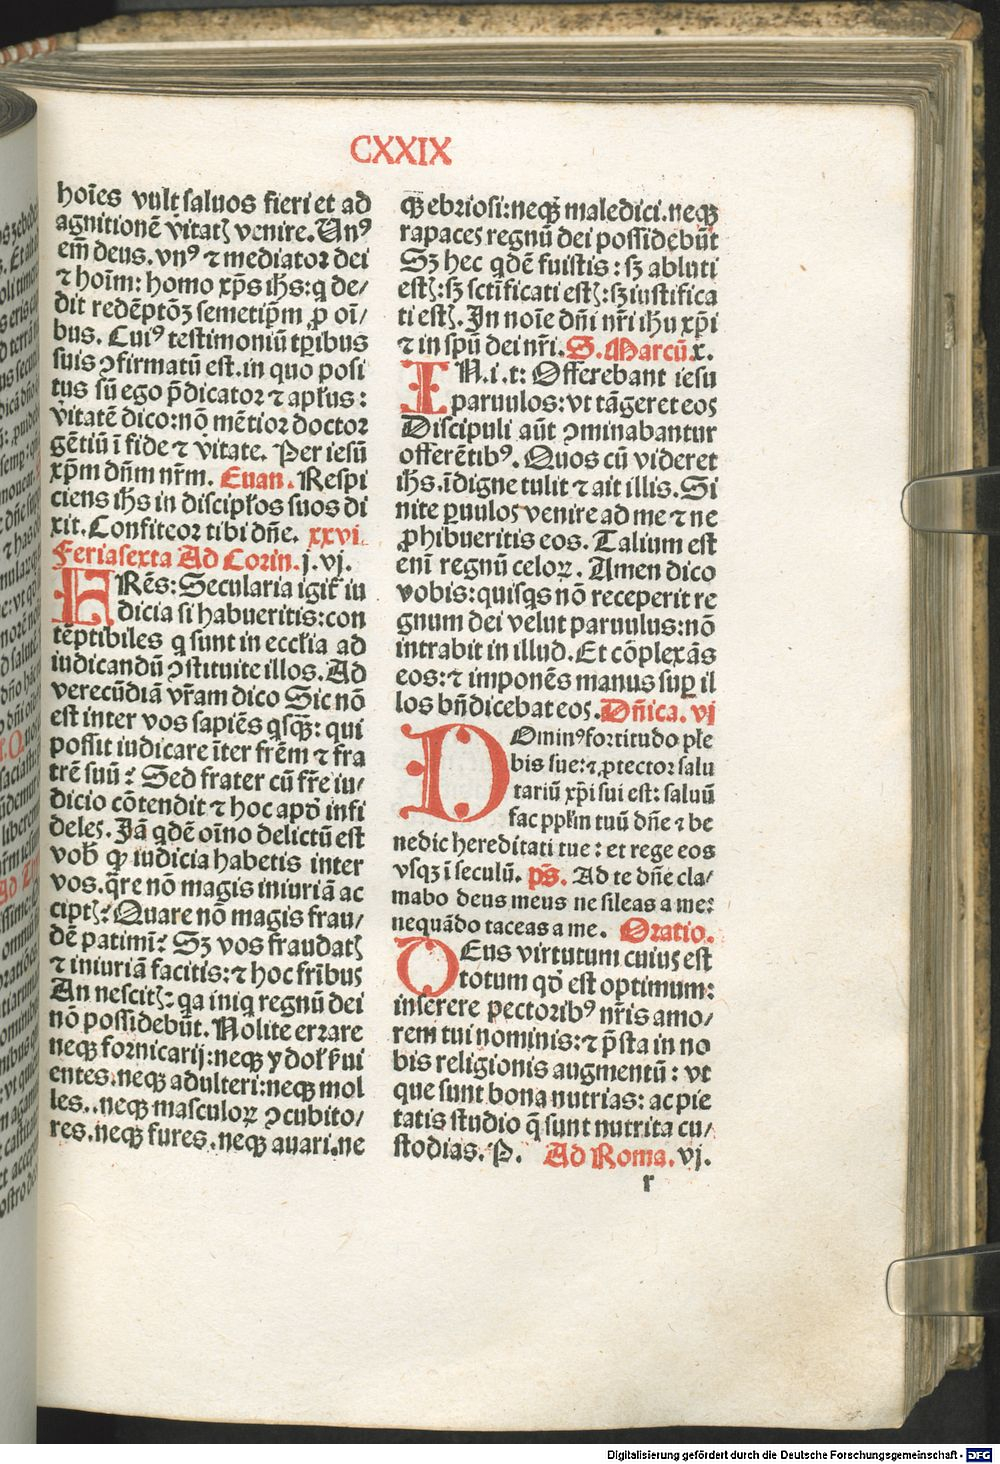 CXXIX
hoīes vult saluos fieri et ad
agnitionē v̇itatꝫ venire. Unꝰ
em̄ deus. vnꝰ ⁊ mediator dei
⁊ hoīm: homo xp̄s ih̄s: q̇ de/
dit redēptōꝫ semetip̄m ꝓ oī/
bus. Cuiꝰ testimoniū tꝑibus
suis ꝯfirmatū est. in quo posi
tus sū ego p̄dicator ⁊ apl̄us:
v̇itatē dico: nō mētior doctor
gētiū ī fide ⁊ v̇itate. Per iesū
xp̄m dn̄m nr̄m. Euan. Respi
ciens ih̄s in discipl̄os suos di
xit. Confiteor tibi dn̄e. xxvi.
Feria sexta Ad Corin. j. vj.
FRēs: Secularia igit̄ iu
dicia si habueritis: con
tēptibiles q̇ sunt in eccl̄ia ad
iudicandū ꝯstituite illos. Ad
verecūdiā vr̄am dico Sic nō
est inter vos sapiēs q̇sq̄ꝫ: qui
possit iudicare īter fr̄em ⁊ fra
trē suū? Sed frater cū fr̄e iu/
dicio cōtendit ⁊ hoc apd̄ infi
deles. Jā q̇dē oīno delictū est
vob̄ ꝙ iudicia habetis inter
vos. q̄re nō magis iniuriā ac
cipitꝫ? Quare nō magis frau/
dē patimī? Sꝫ vos fraudatꝫ
⁊ iniuriā facitis: ⁊ hoc fr̄ibus
An nescitꝫ: qa iniq̇ regnū dei
nō possidebūt. Nolite errare
neqꝫ fornicarij: neqꝫ ydol̄ s̄ui
entes. neqꝫ adulteri: neqꝫ mol
les.. neqꝫ masculoꝝ ꝯcubito/
res. neqꝫ fures. neqꝫ auari. ne
qꝫ ebriosi: neqꝫ maledici. neqꝫ
rapaces regnū dei possidebūt
Sꝫ hec q̇dē fuistis: sꝫ abluti
estꝫ: sꝫ sc̄tificati estꝫ: sꝫ iustifica
ti estꝫ. In noīe dn̄i nr̄i ih̄u xp̄i
⁊ in sp̄u dei nr̄i. S. Marcū. x.
IN. i. t: Offerebant iesu
paruulos: vt tāgeret eos
Discipuli aūt ꝯminabantur
offerētibꝰ. Quos cū videret
ih̄s. īdigne tulit ⁊ ait illis. Si
nite ꝑuulos venire ad me ⁊ ne
ꝓhibueritis eos. Talium est
eni regnū celoꝝ. Amen dico
vobis: quisq̇s nō receperit re
gnum dei velut paruulus: nō
intrabit in illud. Et cōplexās
eos: ⁊ imponēs manus suꝑ il
los bn̄dicebat eos. Dn̄ica. vj
DOminꝰ fortitudo ple
bis sue: ⁊ ꝓtector salu
tariū xp̄i sui est: saluū
fac ppl̄m tuū dn̄e ⁊ be
nedic hereditati tue: et rege eos
vsqꝫ ī seculū. ps̄. Ad te dn̄e cla/
mabo deus meus ne sileas a me:
nequādo taceas a me. Oratio.
DEus virtutum cuius est
totum qd̄ est optimum:
inserere pectoribꝰ nr̄is amo/
rem tui nominis: ⁊ p̄sta in no
bis religionis augmentū: vt
que sunt bona nutrias: ac pie
tatis studio q̄ sunt nutrita cu/
stodias. P. Ad Roma. vj.
r
Digitalisierung gefördert durch die Deutsche Forschungsgemeinschaft - DFG